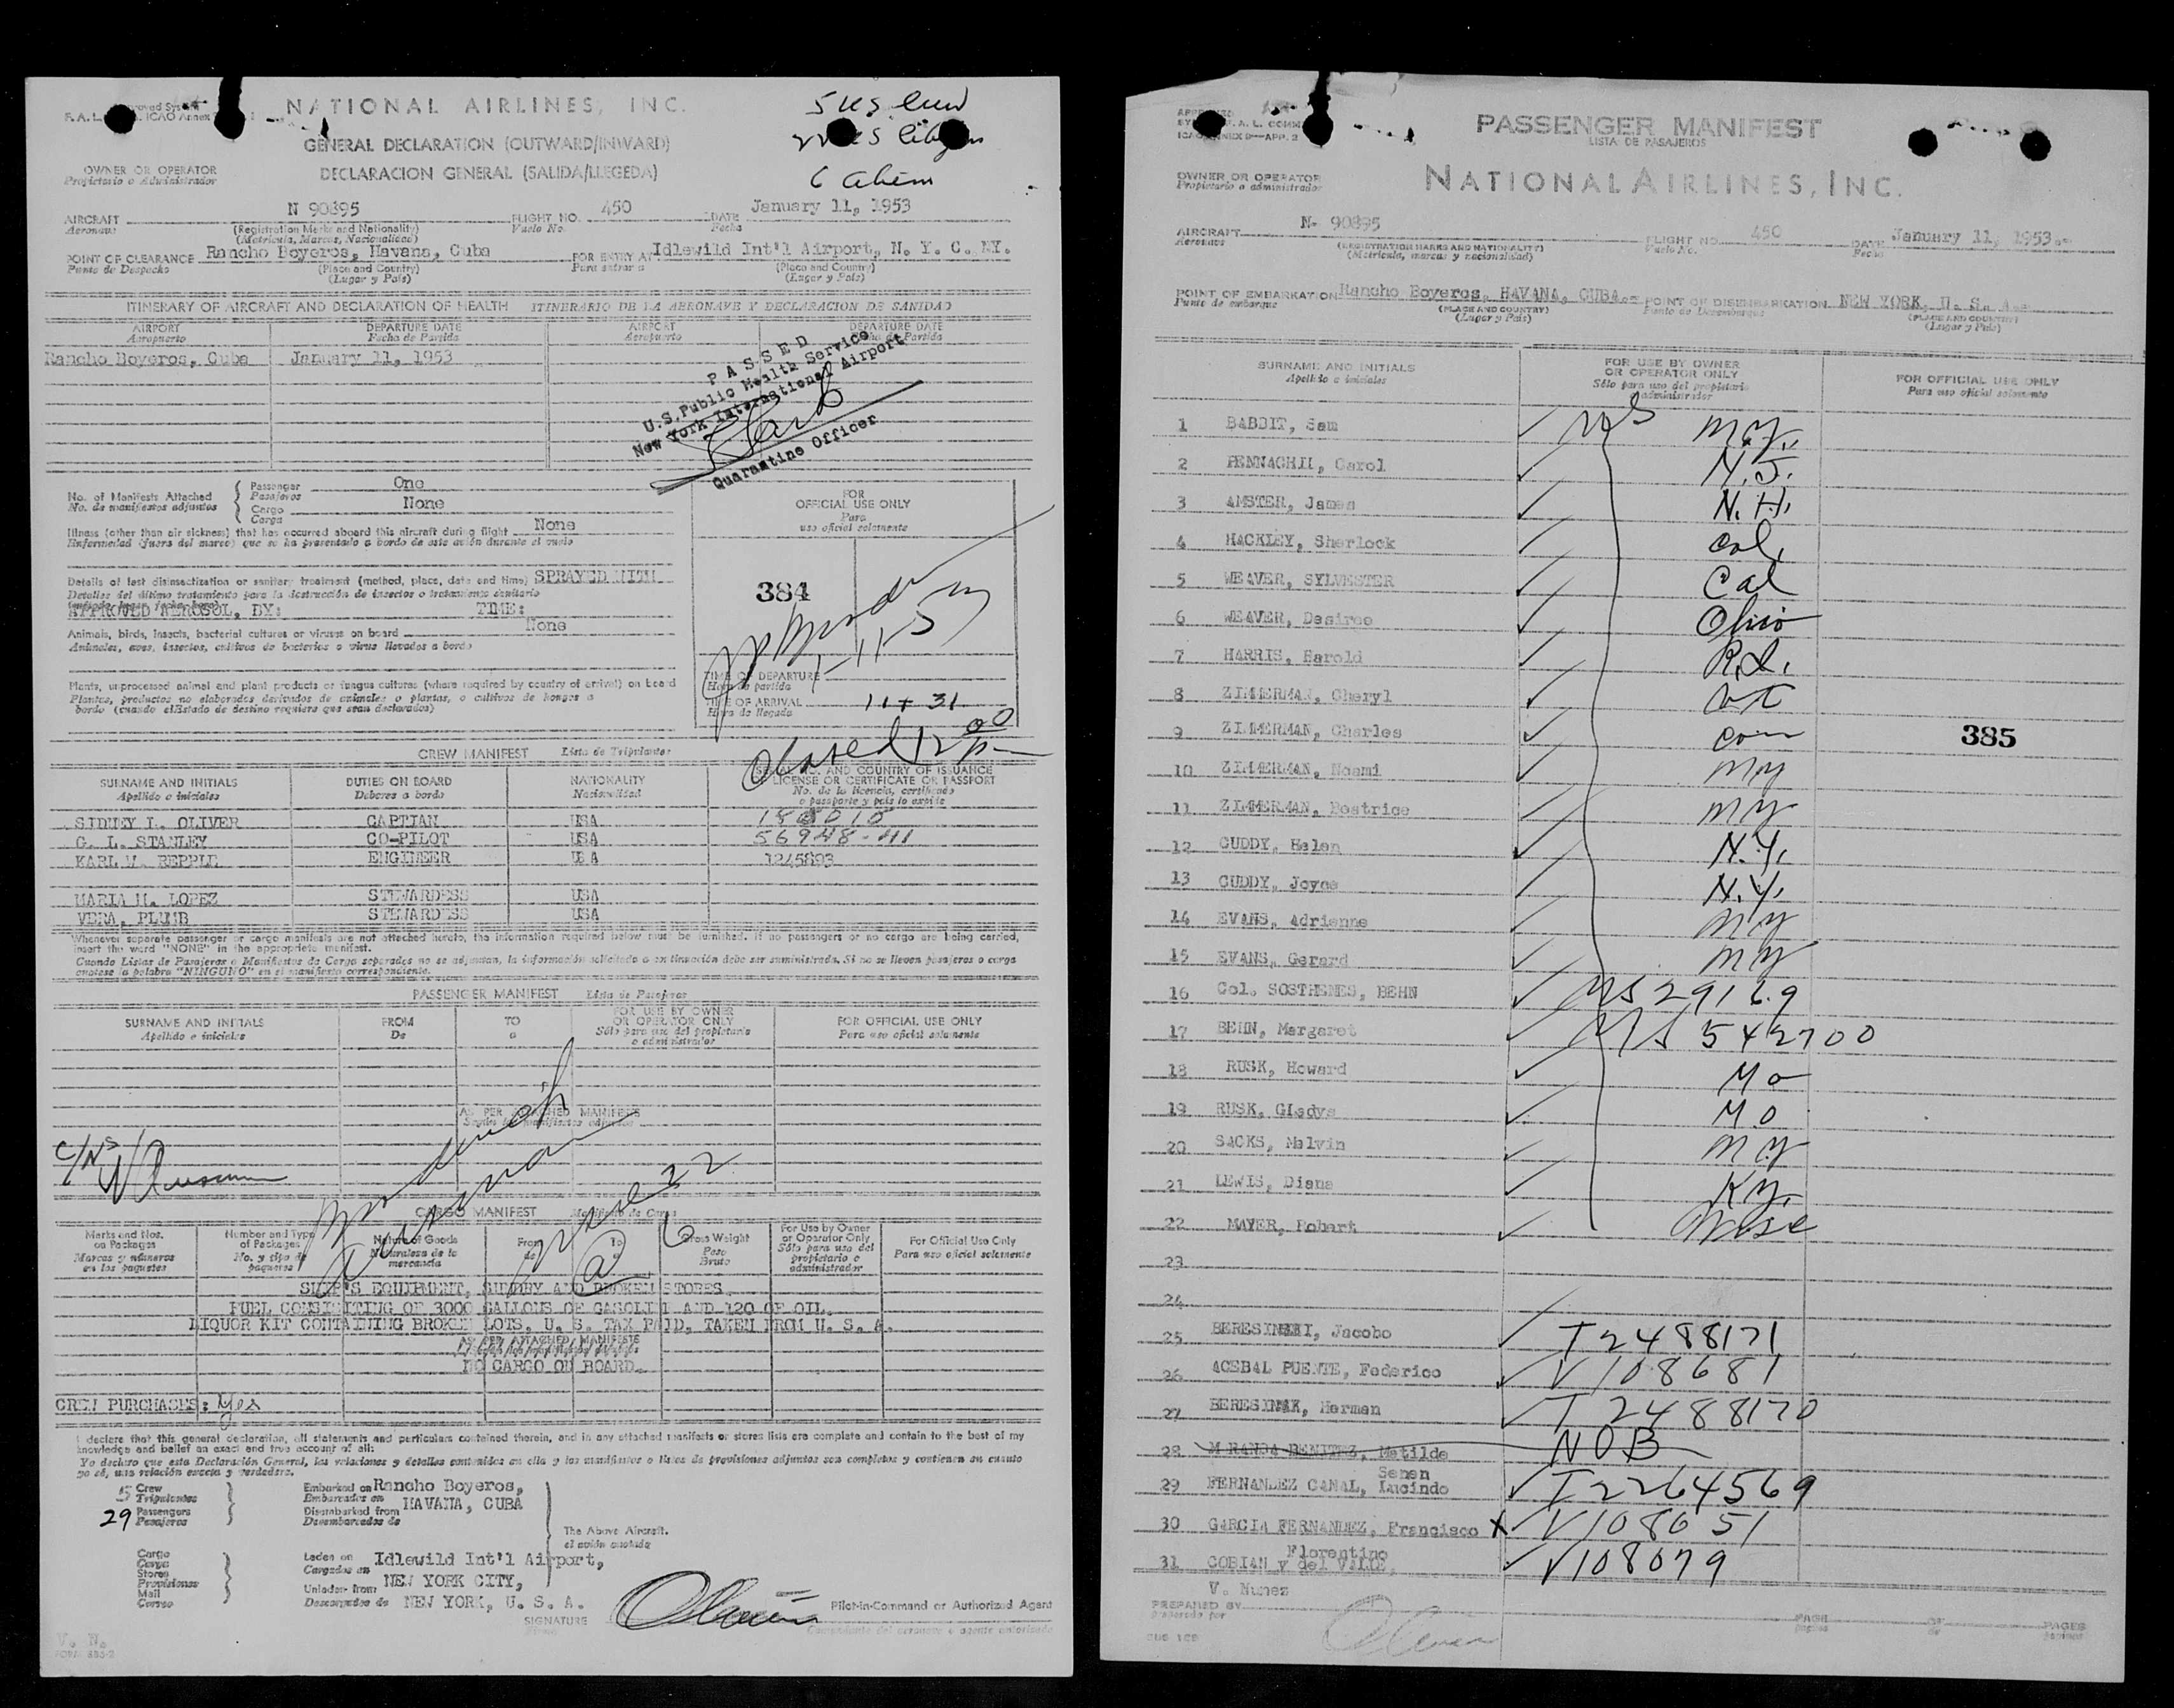 NATIONAL AIRLINES, INC.
GENERAL DECLARATION (OUTWARD/INWARD)
DECLARACION GENERAL (SALIDA/LLEGEDA)
6 alien
OWNER OR OPERATOR
Propietario o Administrador
AIRCRAFT N 90895 FLIGHT NO. 450 DATE January 11, 1953
Aeronave (Registration Marks and Nationality) Vuelo No. Fecha
(Matricula, Marcas, Nacionalidad)
POINT OF CLEARANCE Rancho Boyeros, Havana, Cuba FOR ENTRY AT Idlewild Int'l Airport, N. Y. C., NY.
Punto de Despacho (Place and Country) Para entrar a (Place and Country)
(Lugar y Pais) (Lugar y Pais)
ITINERARY OF AIRCRAFT AND DECLARATION OF HEALTH ITINERARIO DE LA AERONAVE Y DECLARACION DE SANIDAD
AIRPORT DEPARTURE DATE AIRPORT DEPARTURE DATE
Aeropuerto Fecha de Partida Aeropuerto Fecha de Partida
Rancho Boyeros, Cuba January 11, 1953
PASSED
U.S. Public Health Service
New York International Airport
Quarantine Officer
No. of Manifests Attached Passenger One
No. de manifiestos adjuntos Pasajeros
Cargo None
Carga
Illness (other than air sickness) that has occurred aboard this aircraft during flight None
Enfermedad (fuera del mareo) que se ha presentado a bordo de este avión durante el vuelo
Details of last disinsectization or sanitary treatment (method, place, date and time) SPRAYED WITH
Detalles del último tratamiento para la destrucción de insectos o tratamiento sanitario
APPROVED AEROSOL, BY: TIME:
Animals, birds, insects, bacterial cultures or viruses on board None
Animales, aves, insectos, cultivos de bacterias o virus llevados a bordo
Plants, unprocessed animal and plant products or fungus cultures (where required by country of arrival) on board
Plantas, productos no elaborados derivados de animales o plantas, o cultivos de hongos a
bordo (cuando el Estado de destino requiera que sean declarados)
FOR
OFFICIAL USE ONLY
Para
uso oficial solamente
384
1-11-53
TIME OF DEPARTURE
Hora de partida
TIME OF ARRIVAL 11 + 31
Hora de llegada
Closed 12 00
CREW MANIFEST Lista de Tripulantes
SURNAME AND INITIALS DUTIES ON BOARD NATIONALITY SERIAL NO. AND COUNTRY OF ISSUANCE
Apellido e iniciales Deberes a bordo Nacionalidad OF LICENSE OR CERTIFICATE OR PASSPORT
No. de la licencia, certificado
o pasaporte y pais lo expide
SIDNEY L. OLIVER CAPTIAN USA
G. L. STANLEY CO-PILOT USA 56948-41
KARL M. REPPLE ENGINEER USA 1245893
MARIA M. LOPEZ STEWARDESS USA
VERA, PLUMB STEWARDESS USA
Whenever separate passenger or cargo manifests are not attached hereto, the information required below must be furnished. If no passengers or no cargo are being carried,
insert the word "NONE" in the appropriate manifest.
Cuando Listas de Pasajeros o Manifiestos de Carga separados no se adjuntan, la información solicitada a continuación debe ser suministrada. Si no se llevan pasajeros o carga
anotese la palabra "NINGUNO" en el manifiesto correspondiente.
PASSENGER MANIFEST Lista de Pasajeros
SURNAME AND INITIALS FROM TO FOR USE BY OWNER OR OPERATOR ONLY FOR OFFICIAL USE ONLY
Apellido e iniciales De a Sólo para uso del propietario o administrador Para uso oficial solamente
AS PER ATTACHED MANIFESTS
CARGO MANIFEST Manifiesto de Carga
Marks and Nos. on Packages Number and Type of Packages Nature of Goods From To Gross Weight For Use by Owner or Operator Only For Official Use Only
Marcas y números en los paquetes No. y tipo de paquetes Naturaleza de la mercancia de a Peso Bruto Sólo para uso del propietario o administrador Para uso oficial solamente
SHIP'S EQUIPMENT, SUNDRY AND BROKEN STORES
FUEL CONSISTING OF 3000 GALLONS OF GASOLINE AND 120 OF OIL.
LIQUOR KIT CONTAINING BROKEN LOTS, U. S. TAX PAID, TAKEN FROM U. S. A.
AS PER ATTACHED MANIFESTS
NO CARGO ON BOARD.
CREW PURCHASES: Yes
I declare that this general declaration, all statements and particulars contained therein, and in any attached manifests or stores lists are complete and contain to the best of my
knowledge and belief an exact and true account of all:
Yo declaro que esta Declaración General, las relaciones y detalles contenidos en ella y los manifiestos o listas de provisiones adjuntos son completos y contienen en cuanto
yo sé, una relación exacta y verdadera.
5 Crew Embarked on Rancho Boyeros,
Tripulantes Embarcados en HAVANA, CUBA
29 Passengers Disembarked from
Pasajeros Desembarcados de
The Above Aircraft.
el avión anotado
Cargo Laden on Idlewild Int'l Airport,
Carga Cargados en
Stores NEW YORK CITY,
Provisiones Unladen from
Mail Descargados de NEW YORK, U. S. A.
Correo
SIGNATURE Pilot-in-Command or Authorized Agent
Firma Comandante del aeronave o agente autorizado
V. N.
PASSENGER MANIFEST
LISTA DE PASAJEROS
OWNER OR OPERATOR NATIONAL AIRLINES, INC.
Propietario o administrador
AIRCRAFT N- 90895 FLIGHT NO. 450 DATE January 11, 1953.-
Aeronave (REGISTRATION MARKS AND NATIONALITY) Vuelo No. Fecha
(Matricula, marcas y nacionalidad)
POINT OF EMBARKATION Rancho Boyeros, HAVANA, CUBA.- POINT OF DISEMBARKATION NEW YORK, U. S. A.-
Punto de embarque (PLACE AND COUNTRY) Punto de Desembarque (PLACE AND COUNTRY)
(Lugar y Pais) (Lugar y Pais)
SURNAME AND INITIALS FOR USE BY OWNER OR OPERATOR ONLY FOR OFFICIAL USE ONLY
Apellido e iniciales Sólo para uso del propietario o administrador Para uso oficial solamente
1 BABBIT, Sam US N.Y.
2 PENNACHII, Carol N.J.
3 AMSTER, James N.H.
4 HACKLEY, Sherlock Cal.
5 WEAVER, SYLVESTER Cal
6 WEAVER, Desiree Ohio
7 HARRIS, Harold
8 ZIMMERMAN, Cheryl
9 ZIMMERMAN, Charles Conn 385
10 ZIMMERMAN, Noemi NY
11 ZIMMERMAN, Beatrice NY
12 CUDDY, Helen N.Y.
13 CUDDY, Joyce N.Y.
14 EVANS, Adrienne NY
15 EVANS, Gerard NY
16 Col. SOSTHENES, BEHN US 29169
17 BEHN, Margaret US 542700
18 RUSK, Howard Mo
19 RUSK, Gladys Mo
20 SACKS, Melvin NY
21 LEWIS, Diana Ky.
22 MAYER, Robert Wisc
23
24
25 BERESINSKI, Jacobo T2488171
26 ACEBAL PUENTE, Federico V108681
27 BERESINAK, Herman T2488170
28 MIRANDA BENITEZ, Matilde NOB
29 FERNANDEZ CANAL, Senen Lucindo T2264569
30 GARCIA FERNANDEZ, Francisco X V108051
31 COBIAN y del VALLE, Florentino V108079
V. Nunez
PREPARED BY
Preparado por
PAGE OF PAGES